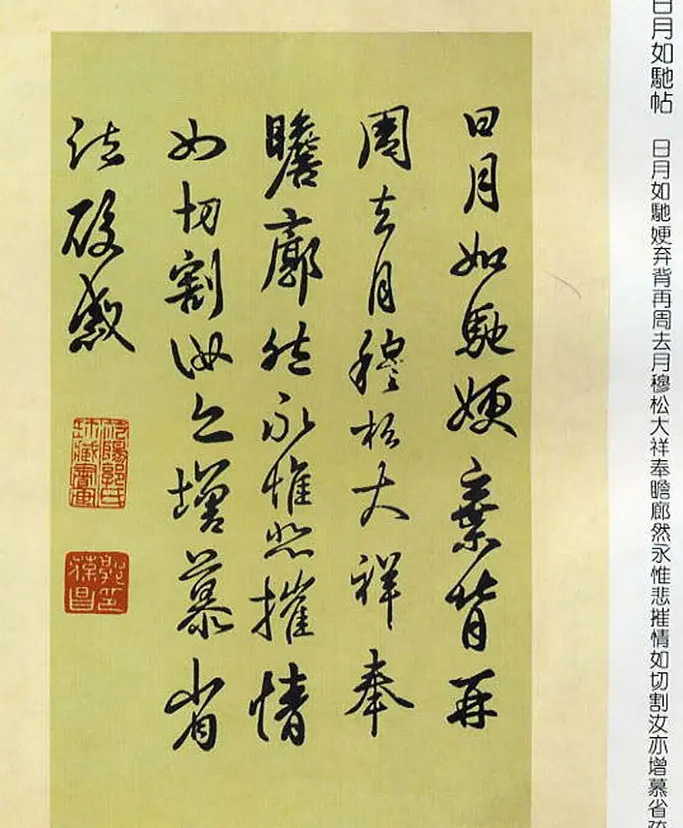 日月如馳帖 日月如馳㛐弃背再周去月穆松大祥奉瞻廊然永惟悲摧情如切割汝亦增慕省
日月如馳㛐棄背再
周去月穆松大祥奉
瞻廓然永惟悲摧情
如切割汝亦增慕省
疏酸感